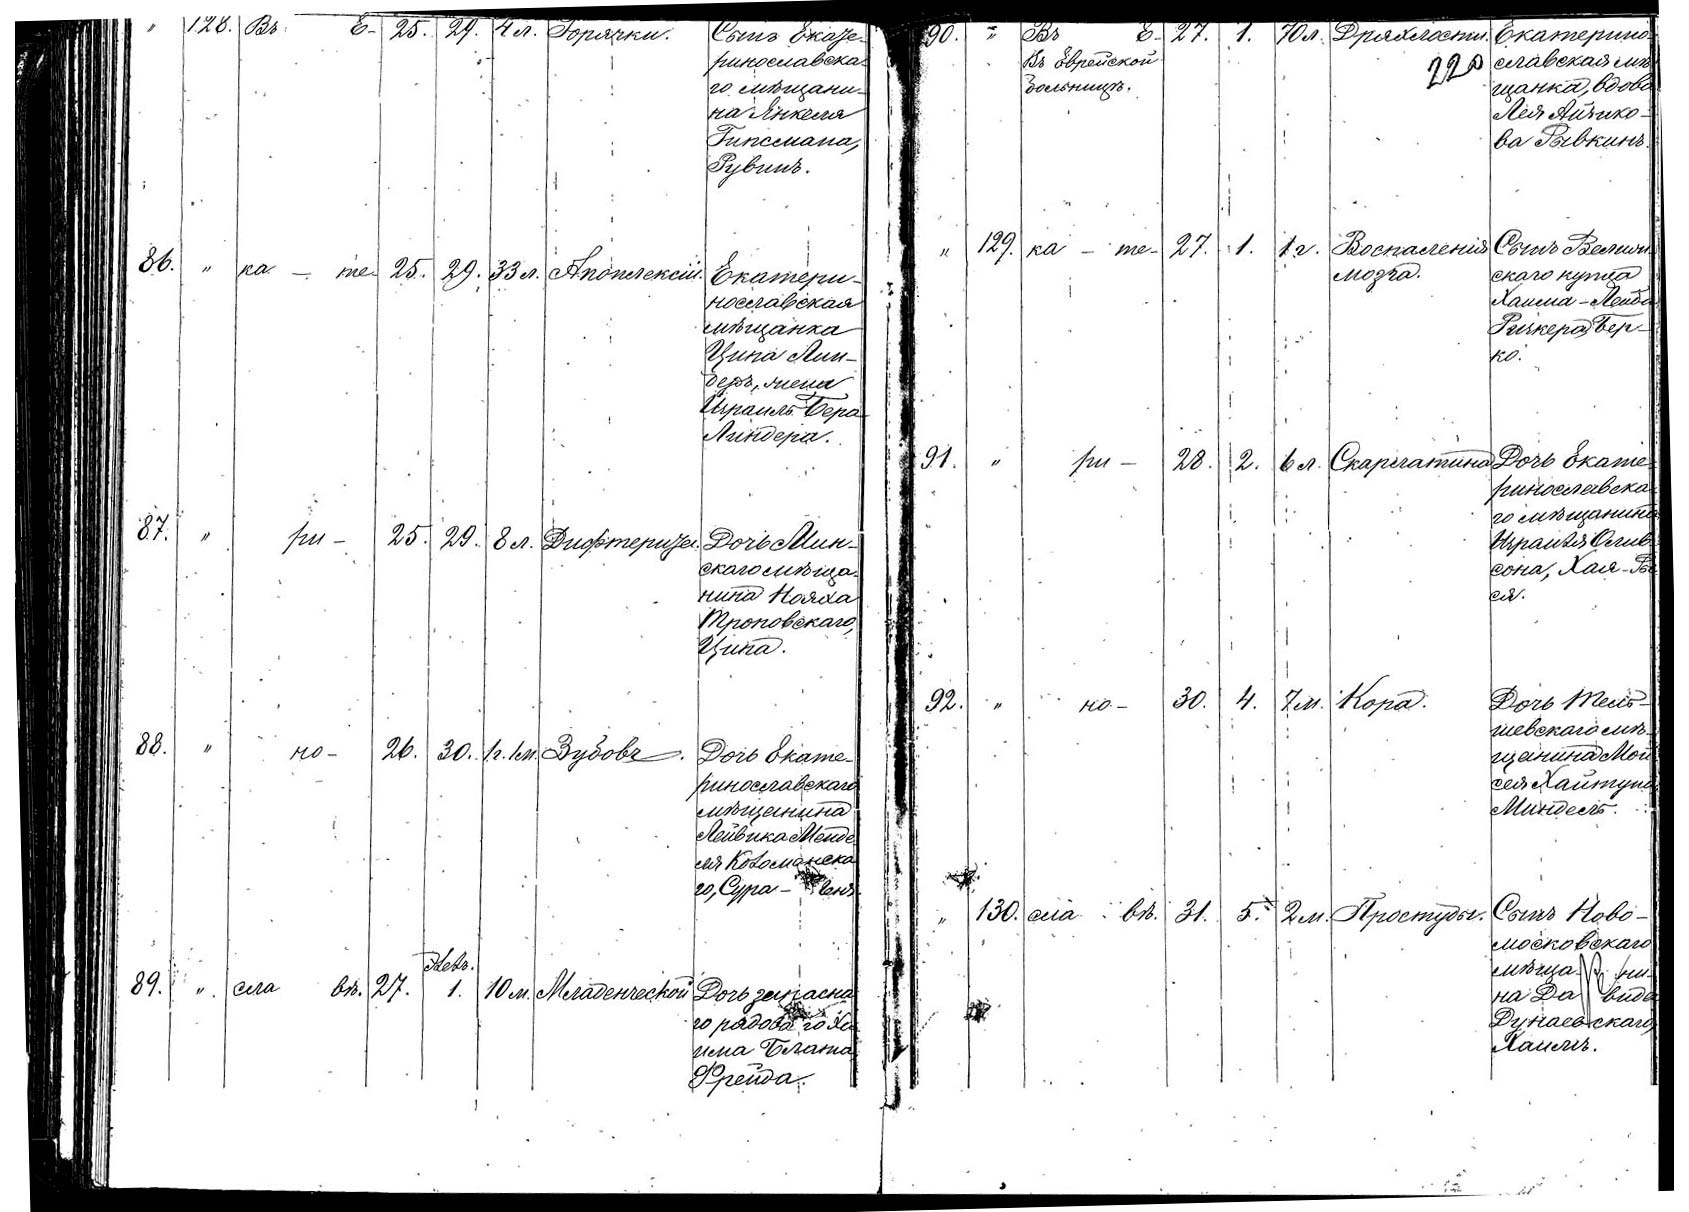 " 128. Въ Е- 25. 29. 4 л. Горячки. Сынъ Екате-
ринославска-
го мѣщани-
на Янкеля
Гипсмана,
Рувинъ.
86. " ка - те- 25. 29. 33 л. Апоплексіи. Екатери-
нославская
мѣщанка
Ципа Лин-
деръ, жена
Израиль Бера
Линдера.
87. " ри - 25. 29. 8 л. Дифтерита. Дочь Мин-
скаго мѣща-
нина Нояха
Троповскаго,
Ципа.
88. " но - 26. 30. 1 г. 1 м. Зубовъ. Дочь Екате-
ринославскаго
мѣщанина
Лейвика Менде
ля Котоманска
го, Сура -
89. " сла вѣ. 27. 1. 10 м. Младенческой Дочь запасна
го рядова го Ха
има Блата
Фрейда.
90. " Въ Е- 27. 1. 70 л. Дряхлости. Екатерино-
Въ Еврейской славская мѣ
больницѣ. щанка, вдова
220
Лея Айзико-
ва Рывкинъ.
" 129. ка - те- 27. 1. 1 г. Воспаленія Сынъ Велиж
мозга. скаго купца
Хаима - Лейба
Ричкера, Бер-
ко.
91. " ри - 28. 2. 6 л. Скарлатина Дочь Екате-
ринославска-
го мѣщанина
Израиля Олев
сона, Хая - Бе
ся.
92. " но - 30. 4. 7 м. Кора. Дочь Тель-
шевскаго мѣ-
щанина Мой
сея Хайтуна
Миндель.
" 130. сла вѣ. 31. 5. 2 м. Простуды. Сынъ Ново-
московскаго
мѣща ни-
на Да вида
Дунаевскаго,
Хаимъ.